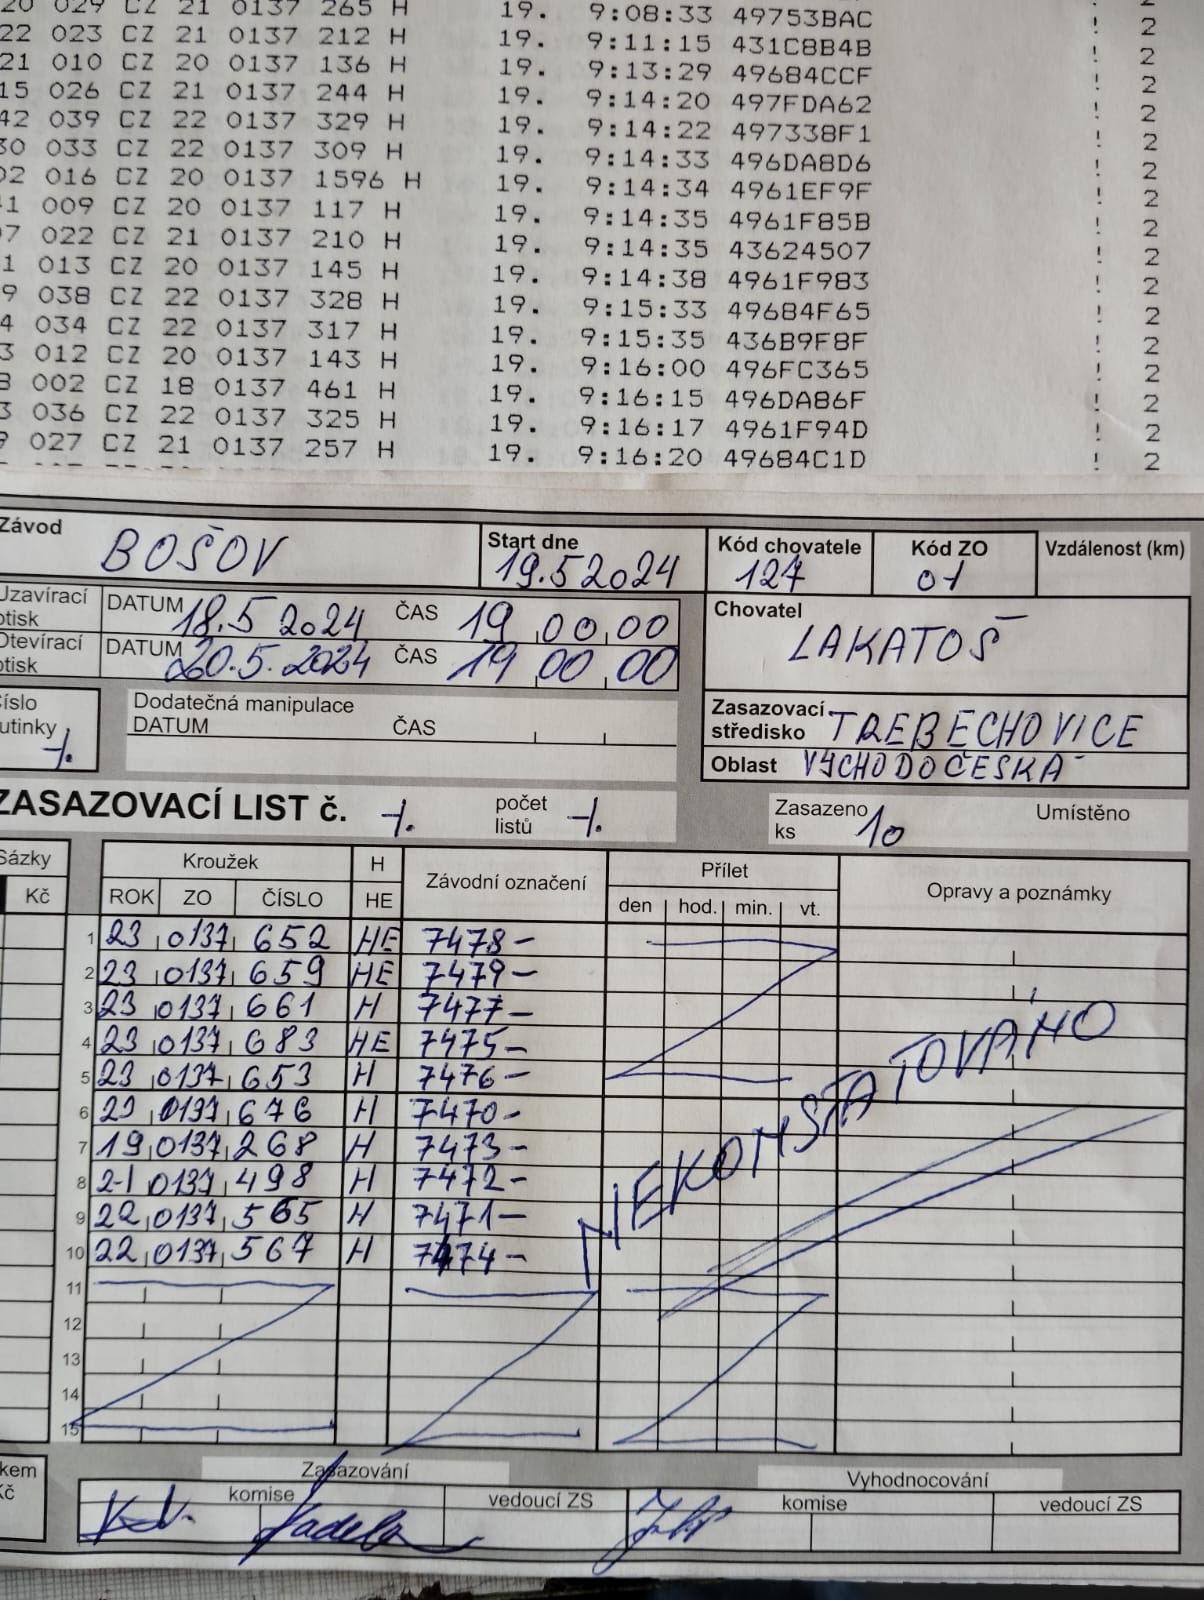 029 CZ 21 0137 265 H 19. 9:08:33 49753BAC
22 023 CZ 21 0137 212 H 19. 9:11:15 431C8B4B ! 2
21 010 CZ 20 0137 136 H 19. 9:13:29 49684CCF ! 2
15 026 CZ 21 0137 244 H 19. 9:14:20 497FDA62 ! 2
42 039 CZ 22 0137 329 H 19. 9:14:22 497338F1 ! 2
30 033 CZ 22 0137 309 H 19. 9:14:33 496DA8D6 ! 2
02 016 CZ 20 0137 1596 H 19. 9:14:34 4961EF9F ! 2
009 CZ 20 0137 117 H 19. 9:14:35 4961F85B ! 2
022 CZ 21 0137 210 H 19. 9:14:35 43624507 ! 2
1 013 CZ 20 0137 145 H 19. 9:14:38 4961F983 ! 2
9 038 CZ 22 0137 328 H 19. 9:15:33 49684F65 ! 2
4 034 CZ 22 0137 317 H 19. 9:15:35 436B9F8F ! 2
3 012 CZ 20 0137 143 H 19. 9:16:00 496FC365 ! 2
002 CZ 18 0137 461 H 19. 9:16:15 496DA86F ! 2
3 036 CZ 22 0137 325 H 19. 9:16:17 4961F94D ! 2
027 CZ 21 0137 257 H 19. 9:16:20 49684C1D ! 2
Závod BOŠOV Start dne 19.5 2024 Kód chovatele 127 Kód ZO 01 Vzdálenost (km)
Uzavírací otisk DATUM 18.5 2024 ČAS 19 00 00
Otevírací otisk DATUM 20.5.2024 ČAS 19 00 00
Chovatel LAKATOŠ
číslo utinky 1.
Dodatečná manipulace
DATUM ČAS
Zasazovací středisko TREBECHOVICE
Oblast VÝCHODOČESKÁ
ZASAZOVACÍ LIST č. 1. počet listů 1. Zasazeno ks 10 Umístěno
Sázky Kroužek H Závodní označení Přílet Opravy a poznámky
Kč ROK ZO ČÍSLO HE den hod. min. vt.
1 23 0137 652 HE 7478-
2 23 0137 659 HE 7479-
3 23 0137 661 H 7477-
4 23 0137 683 HE 7475-
5 23 0137 653 H 7476-
6 23 0137 676 H 7470-
7 19 0137 268 H 7473-
8 21 0137 498 H 7472-
9 22 0137 565 H 7471-
10 22 0137 567 H 7474-
NEKONSTATOVÁNO
11
12
13
14
15
kem Kč
Zasazování Vyhodnocování
komise vedoucí ZS komise vedoucí ZS